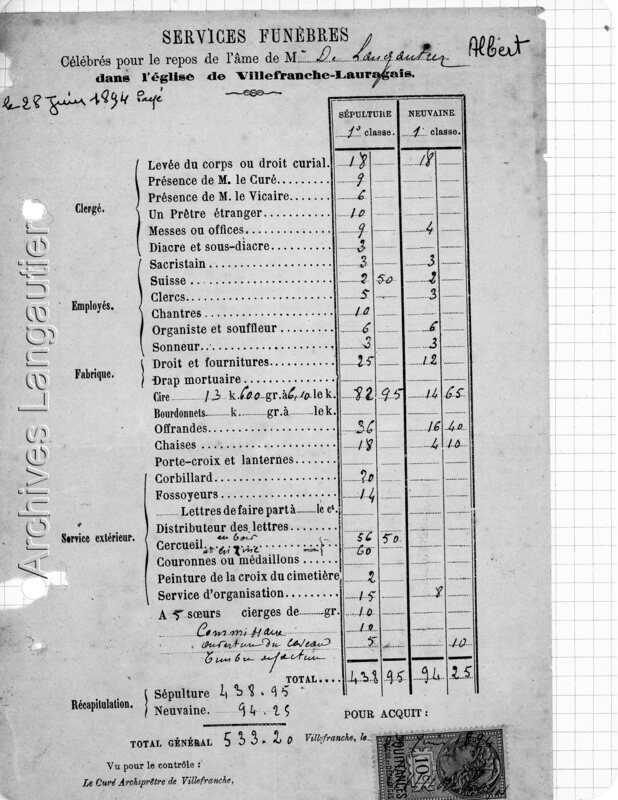 SERVICES FUNÈBRES
Célébrés pour le repos de l'âme de Mr De Langautier Albert
dans l'église de Villefranche-Lauragais.
le 28 Juin 1894 Payé
SÉPULTURE NEUVAINE
1º classe. 1 classe.
Clergé.
Levée du corps ou droit curial. 18 18
Présence de M. le Curé......... 9
Présence de M. le Vicaire...... 6
Un Prêtre étranger............ 10
Messes ou offices............. 9 4
Diacre et sous-diacre......... 3
Employés.
Sacristain .................. 3 3
Suisse ...................... 2 50 2
Clercs....................... 5 3
Chantres .................... 10
Organiste et souffleur ........ 6 6
Sonneur...................... 3 3
Fabrique.
Droit et fournitures.......... 25 12
Drap mortuaire...............
Cire 13 k. 600 gr. à 6,10 le k. 82 95 14 65
Bourdonnets k. gr. à le k.
Offrandes.................... 36 16 40
Chaises ..................... 18 4 10
Porte-croix et lanternes.......
Service extérieur.
Corbillard................... 20
Fossoyeurs................... 14
Lettres de faire part à le ct.
Distributeur des lettres.......
Cercueil en bois 56 50
et en zinc 60
Couronnes ou médaillons .....
Peinture de la croix du cimetière 2
Service d'organisation........ 15 8
A 5 sœurs cierges de gr. 10
Commissaire 10
ouverture du caveau 5 10
Timbre
TOTAL.... 438 95 94 25
Récapitulation.
Sépulture 438.95
Neuvaine. 94.25
POUR ACQUIT :
TOTAL GÉNÉRAL 533.20 Villefranche, le
Vu pour le contrôle :
Le Curé Archiprêtre de Villefranche,
QUITTANCES
10
Archives Langautier